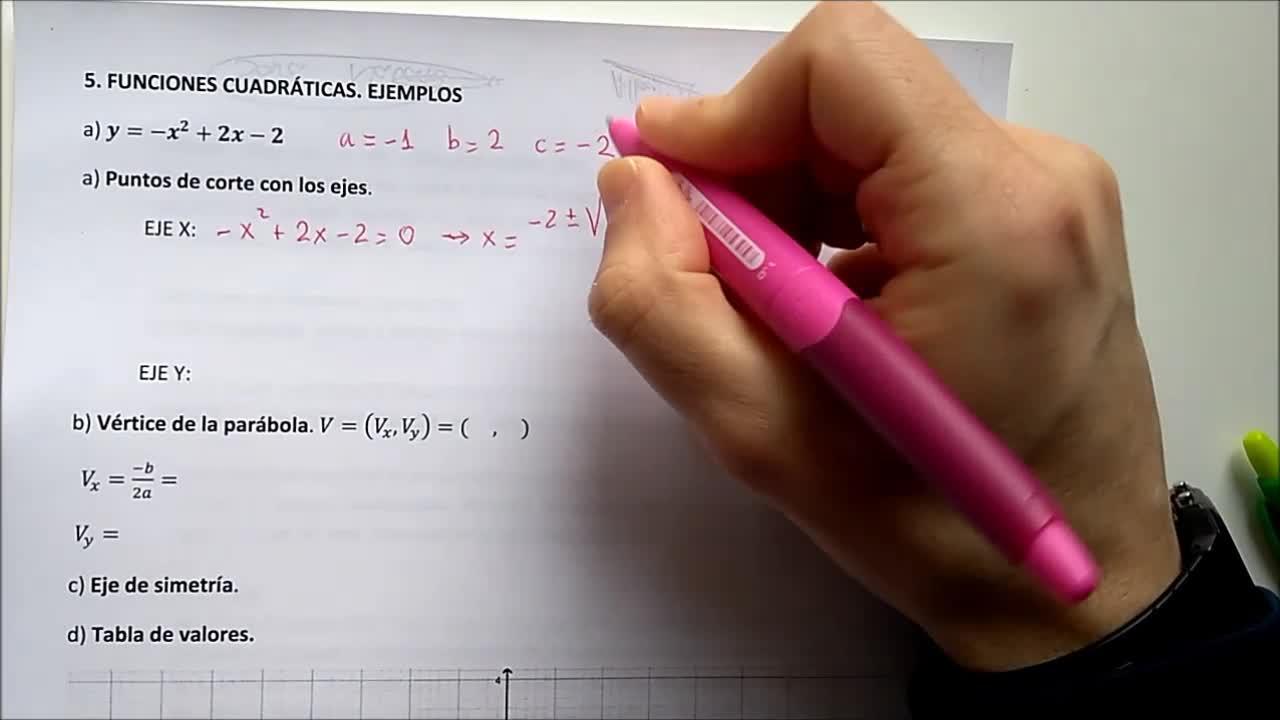 5. FUNCIONES CUADRÁTICAS. EJEMPLOS
a) y = −x² + 2x − 2 a = -1 b = 2 c = -2
a) Puntos de corte con los ejes.
EJE X: -x² + 2x - 2 = 0 → x = -2 ± √
EJE Y:
b) Vértice de la parábola. V = (Vₓ, Vᵧ) = ( , )
Vₓ = −b/2a =
Vᵧ =
c) Eje de simetría.
d) Tabla de valores.
4